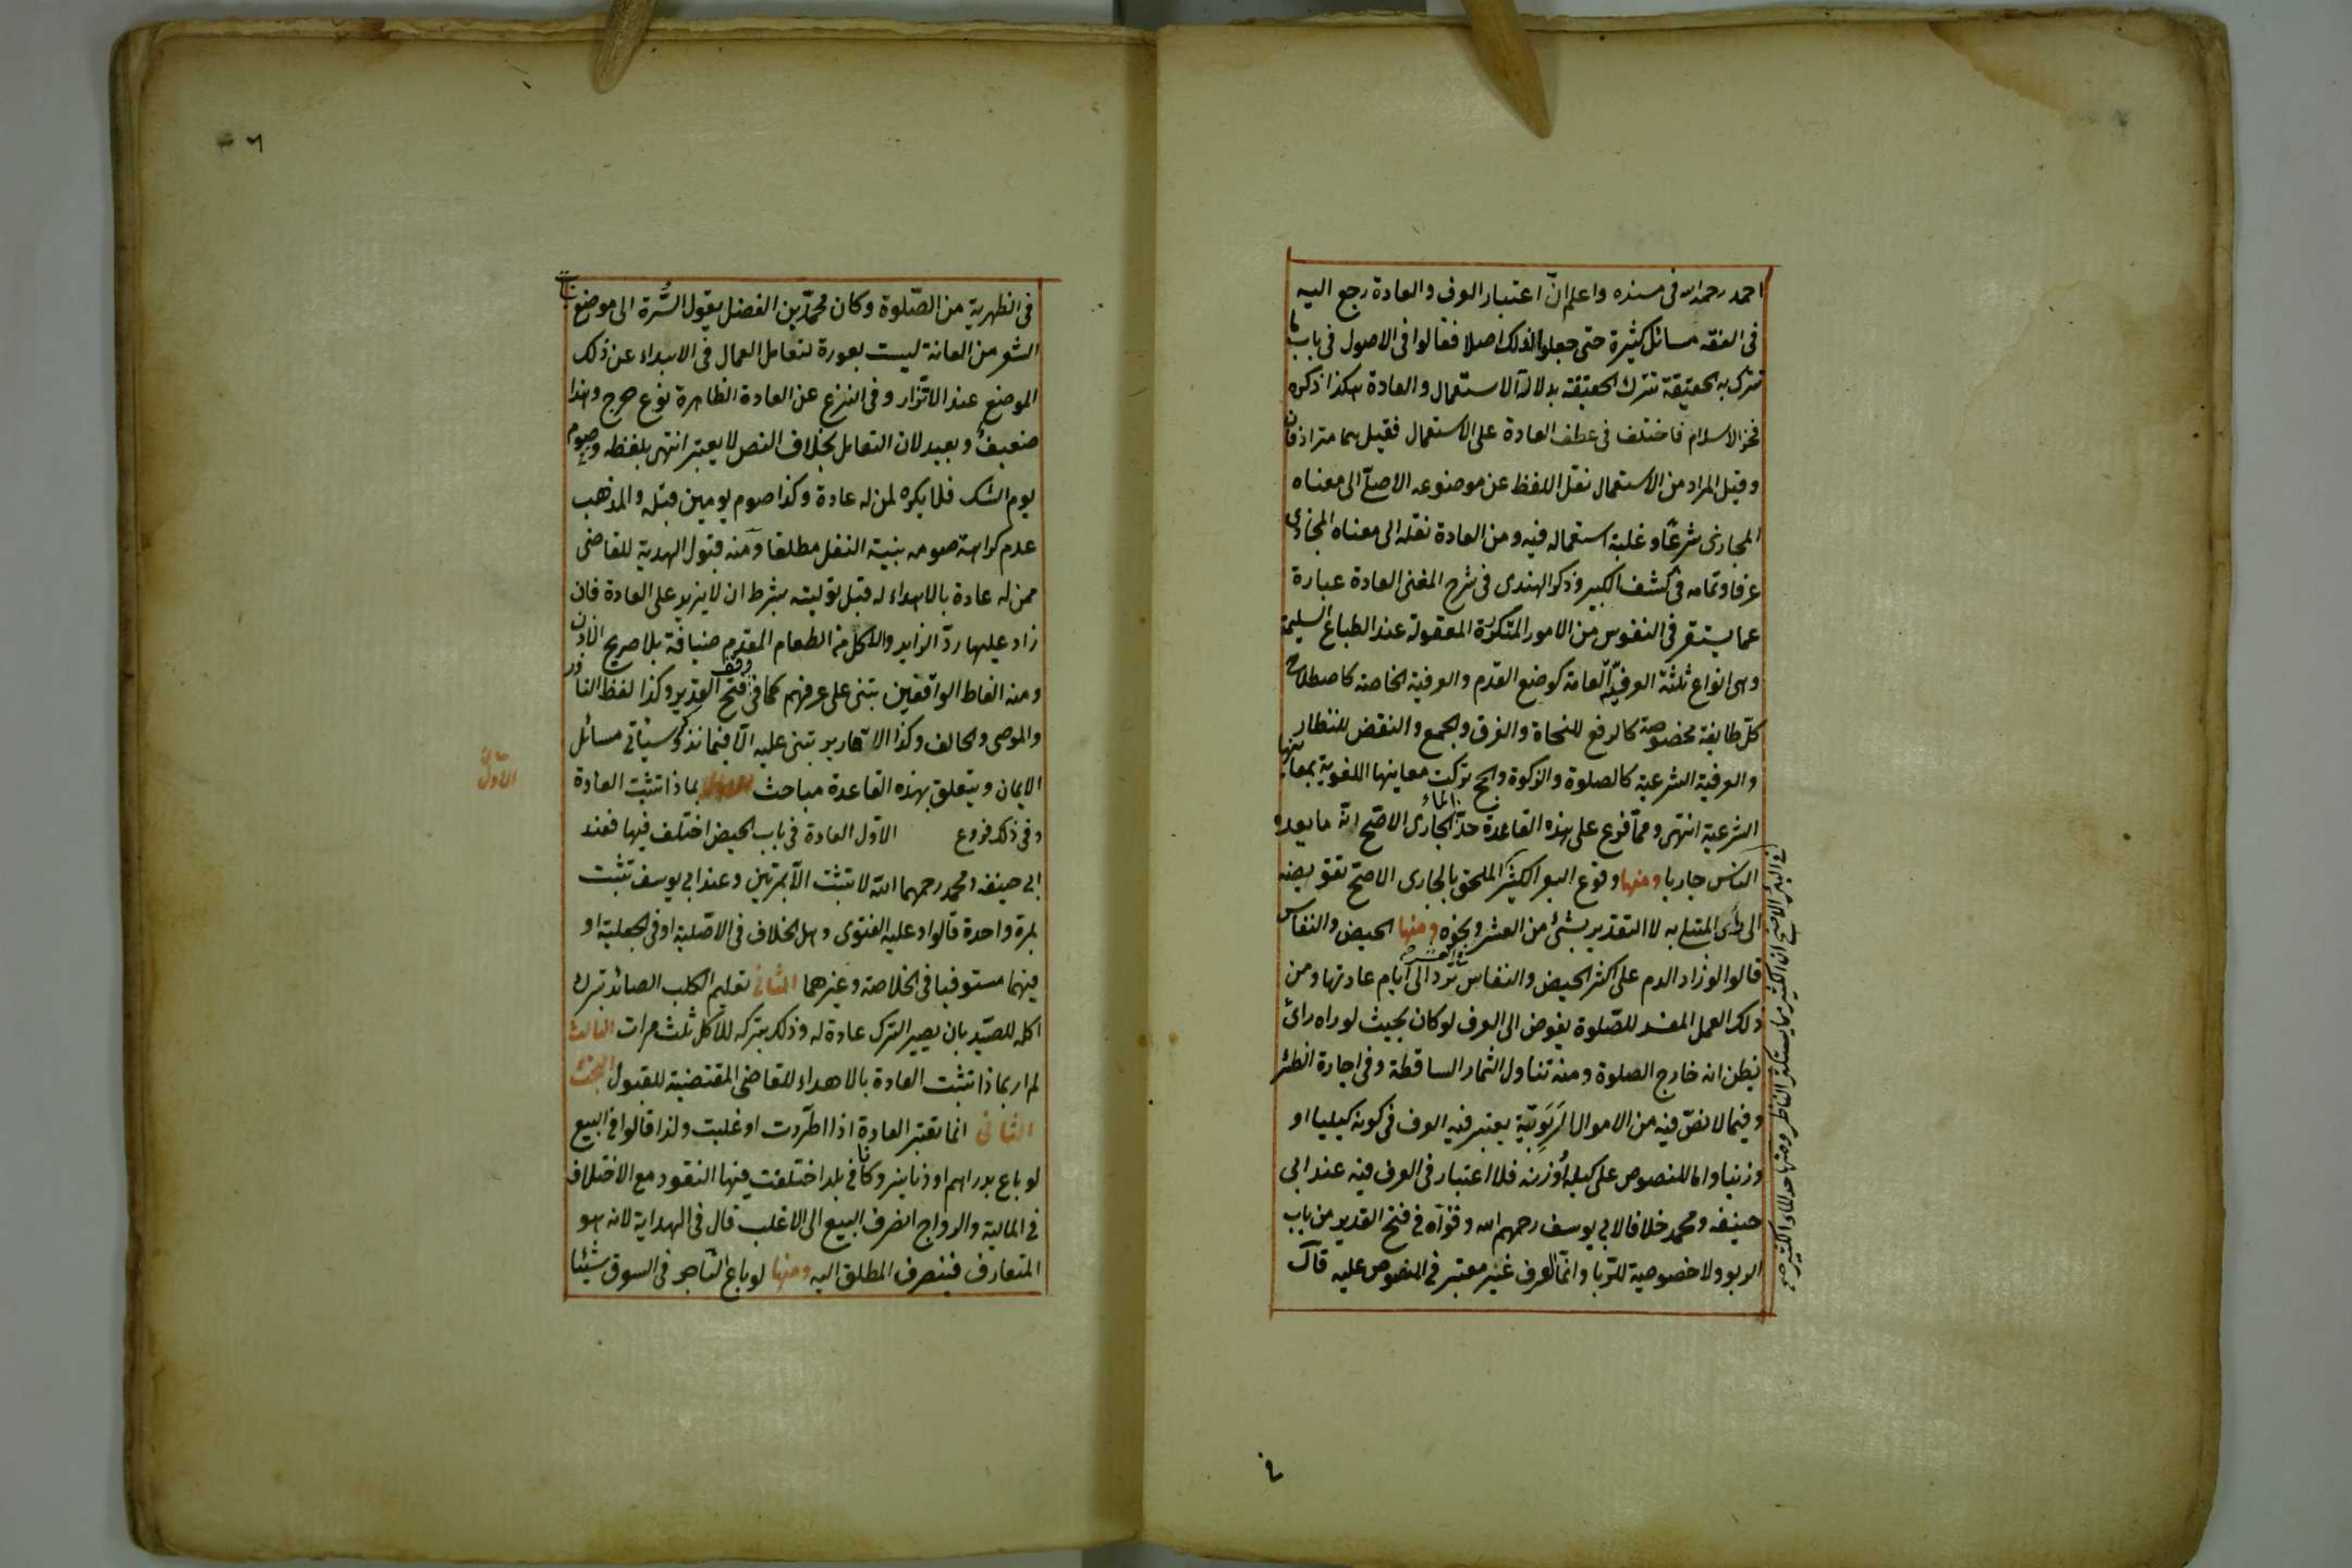 احمد رحمه الله فى مسنده واعلم انّ اعتبار العرف والعادة رجع اليه
فى الفقه مسائل كثيرة حتى جعلوا ذلك اصلا فقالوا فى الاصول فى باب ما
تترك به الحقيقة تترك الحقيقة بدلالة الاستعمال والعادة هكذا ذكره
فخر الاسلام فاختلف فى عطف العادة على الاستعمال فقيل هما مترادفان
وقيل المراد من الاستعمال نقل اللفظ عن موضوعه الاصلّى الى معناه
المجازى شرعًا وغلبة استعماله فيه ومن العادة نقله الى معناه المجازى
عرفا وتمامه فى كشف الكبير وذكر الهندى فى شرح المغنى العادة عبارة
عما يستقر فى النفوس من الامور المتكررة المعقولة عند الطباع السليمة
وهى انواع ثلثة العرفيّة العامة كوضع القدم والعرفية الخاصة كاصطلاح
كلّ طايفة مخصوصة كالرفع للنحاة والفرق والجمع والنقض للنظار
والعرفية الشرعية كالصلوة والزكوة والحج تركت معاينها اللغوية بمعانيها
الشرعية انتهى ومما فرع على هذه القاعدة حدّ الماء الجارى الاصحّ انّه ما يعده
الناس جاريا ومنها وقوع البعر الكثير الملحق بالجارى الاصحّ تفويضه
الى رأى المبتلى به لا التقدير بشئ من العشر ونحوه ومنها الحيض والنفاس
قالوا لو زاد الدم على اكثر الحيض والنفاس تردّ الى ايام عادتها ومن
ذلك العمل المفسد للصّلوة يفوض الى العرف لو كان بحيث لو راه رائ
يظن انه خارج الصلوة ومنه تناول الثمار الساقطة وفى اجارة الظئر
وفيما لا نصّ فيه من الاموال الرَبَوِيّة يعتبر فيه العرف فى كونه كيليا او
وزنيا واما المنصوص على كيله او وزنه فلا اعتبار فى العرف فيه عند ابى
حنيفه ومحمد خلافا لابى يوسف رحمهم الله وقوّاه فى فتح القدير من باب
الربو ولا خصوصية للرّبا وانّما العرف غير معتبر فى المنصوص عليه قال
فى الظهرية من الصّلوة وكان محمّد بن الفضل يقول السُّرة الى موضع نبات
الشعر من العانة ليست بعورة لتعامل العمال فى الابداء عن ذلك
الموضع عند الاتّزار وفى النزع عن العادة الظاهرة نوع حرج وهذا
ضعيف وبعيد لان التعامل بخلاف النص لا يعتبر انتهى بلفظه وصوم
يوم الشك فلا يكره لمن له عادة وكذا صوم يومين قبله والمذهب
عدم كراهة صومه بنية النفل مطلقا ومنه قبول الهدية للقاضى
ممن له عادة بالاهداء له قبل توليته بشرط ان لا يزيد على العادة فان
زاد عليها ردّ الزايد والاكل من الطعام المقدم ضيافة بلا صريح الاذن
ومنه الفاظ الواقفين تبتنى على عرفهم كما فى وقف فتح القدير وكذا لفظ الناذر
والموصى والحالف وكذا الاقارير تبنى عليه الّا فيما نذكره وسيأتى مسائل
الايمان ويتعلق بهذه القاعدة مباحث بماذا تثبت العادة
وفى ذلك فروع الاوّل العادة فى باب الحيض اختلف فيها فعند
ابى حنيفه ومحمد رحمهما الله لا تثبت الّا بمرّتين وعند ابى يوسف تثبت
بمرة واحدة قالوا وعليه الفتوى وهل الخلاف فى الاصّلية او فى الجعلية او
فيهما مستوفيا فى الخلاصة وغيرهما الثانى تعليم الكلب الصائد بترك
اكله للصّيد بان يصير الترك عادة له وذلك بتركه للاكل ثلث مرات الثالث
لم ار بماذا تثبت العادة بالاهداء للقاضى المقتضية للقبول البحث
الثانى انما تعتبر العادة اذا اطّردت او غلبت ولذا قالوا فى البيع
لو باع بدراهم او دنانير وكانا فى بلد اختلفت فيها النقود مع الاختلاف
فى المالية والرواج انصرف البيع الى الاغلب قال فى الهداية لانه هو
المتعارف فينصرف المطلق اليه ومنها لو باع التاجر فى السوق شيئا
الاول